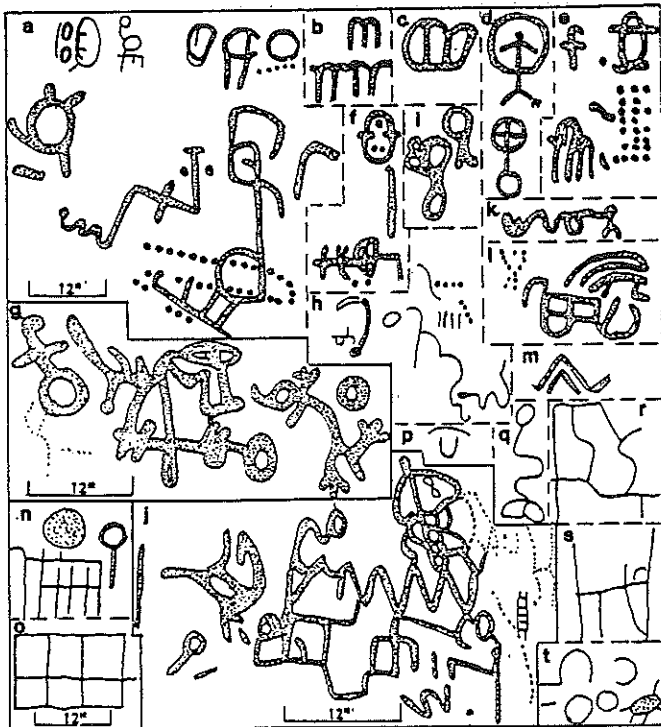 a b c d e
f i
k
l
12"
h
g
m
p q r
12"
n j
s
o
t
12" 12"